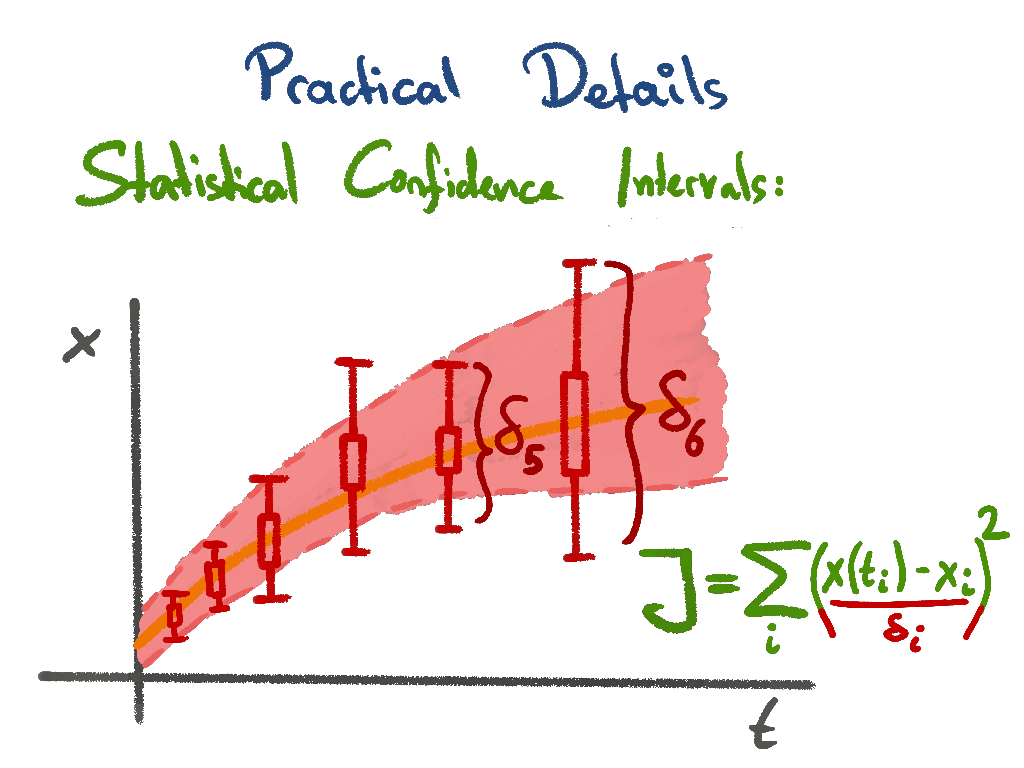 Practical Details
Statistical Confidence Intervals:
x
δ₅
δ₆
J = ∑ᵢ ((x(tᵢ) - xᵢ) / δᵢ)²
t